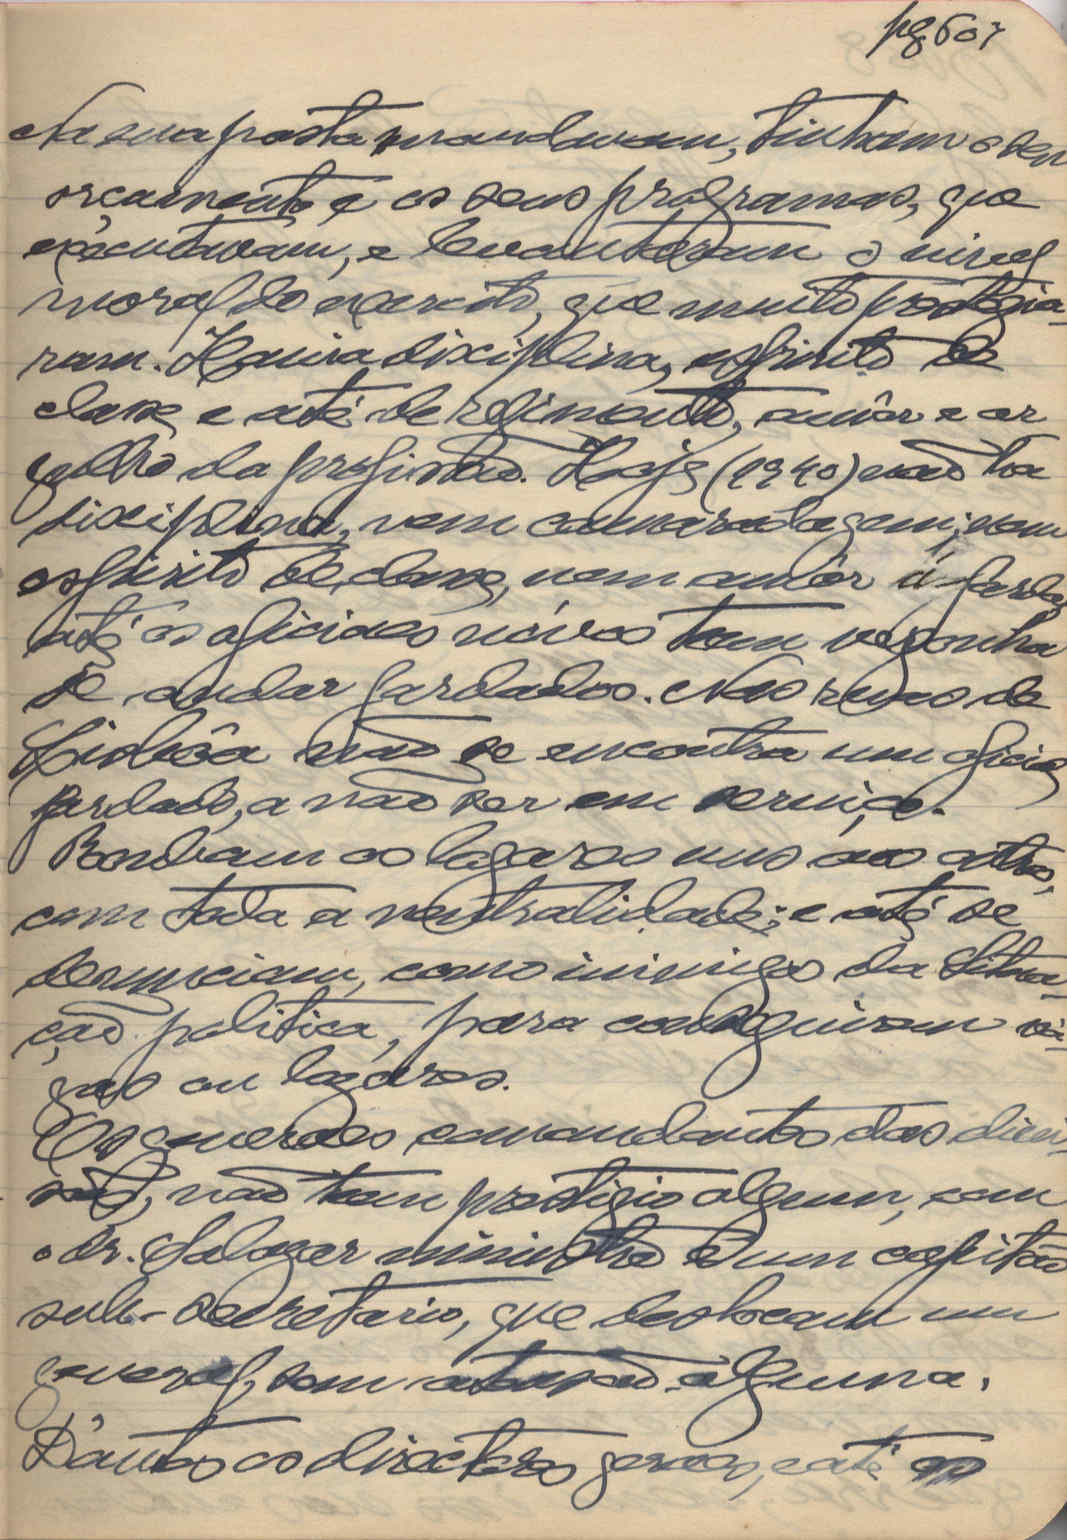 pg 607
Na sua pasta mandavam, tinham o seu
orçamento e os seus programas, que
executavam, e levantaram o nivel
moral do exercito, que muito protegia-
ram. Havia disciplina, espirito de
classe e até de regimento, amôr e or
gulho da profissão. Hoje (1940) não ha
disciplina, nem camaradagem; nem
espirito de classe, nem amôr á farda
até os oficiaes nóvos tem vergonha
de andar fardados. Nas ruas de
Lisbôa não se encontra um oficial
fardado, a não ser em serviço.
Roubam os logares uns aos outros,
com toda a neutralidade; e até se
denunciam, como inimigos da Situa-
ção politica, para conseguirem vá-
gas ou logares.
Os generaes comandantes das divi-
sões, não tem prestigio algum, com
o dr. Salazar ministro e um capitão
sub-secretario, que deslocam um
general, sem atenção alguma.
D'antes os directores geraes, e até os